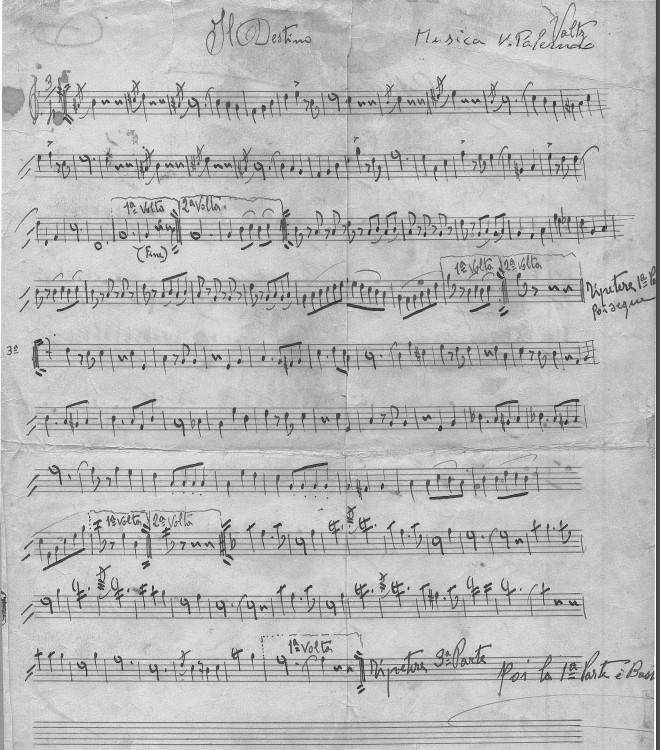 Il Destino Musica V. Palermo
Voltz
1ª Volta 2ª Volta
(Fine)
1ª Volta 2ª Volta
Ripetere 1ª Pa
poi segue
3ª
1ª Volta 2ª Volta
1ª Volta
Ripetere 3ª Parte Poi la 1ª Parte e Basta